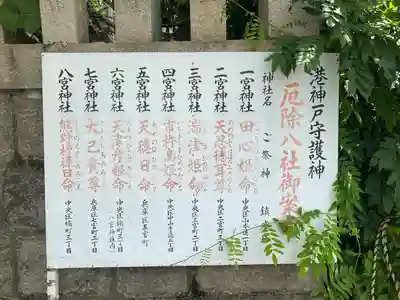 港神戸守護神
厄除八社御案
神社名 ご祭神 鎮
一宮神社 田心姫命 中央区山本通一丁目
二宮神社 天忍穂耳尊 中央区二宮町三丁目
三宮神社 湍津姫命 中央区三宮町二丁目
四宮神社 市杵島姫命 中央区中山手通五丁目
五宮神社 天穂日命 兵庫区五宮町
六宮神社 天津彦根命 中央区楠町三丁目 八宮神社内
七宮神社 大己貴尊 兵庫区七宮町二丁目
八宮神社 熊野杼樟日命 中央区楠町三丁目